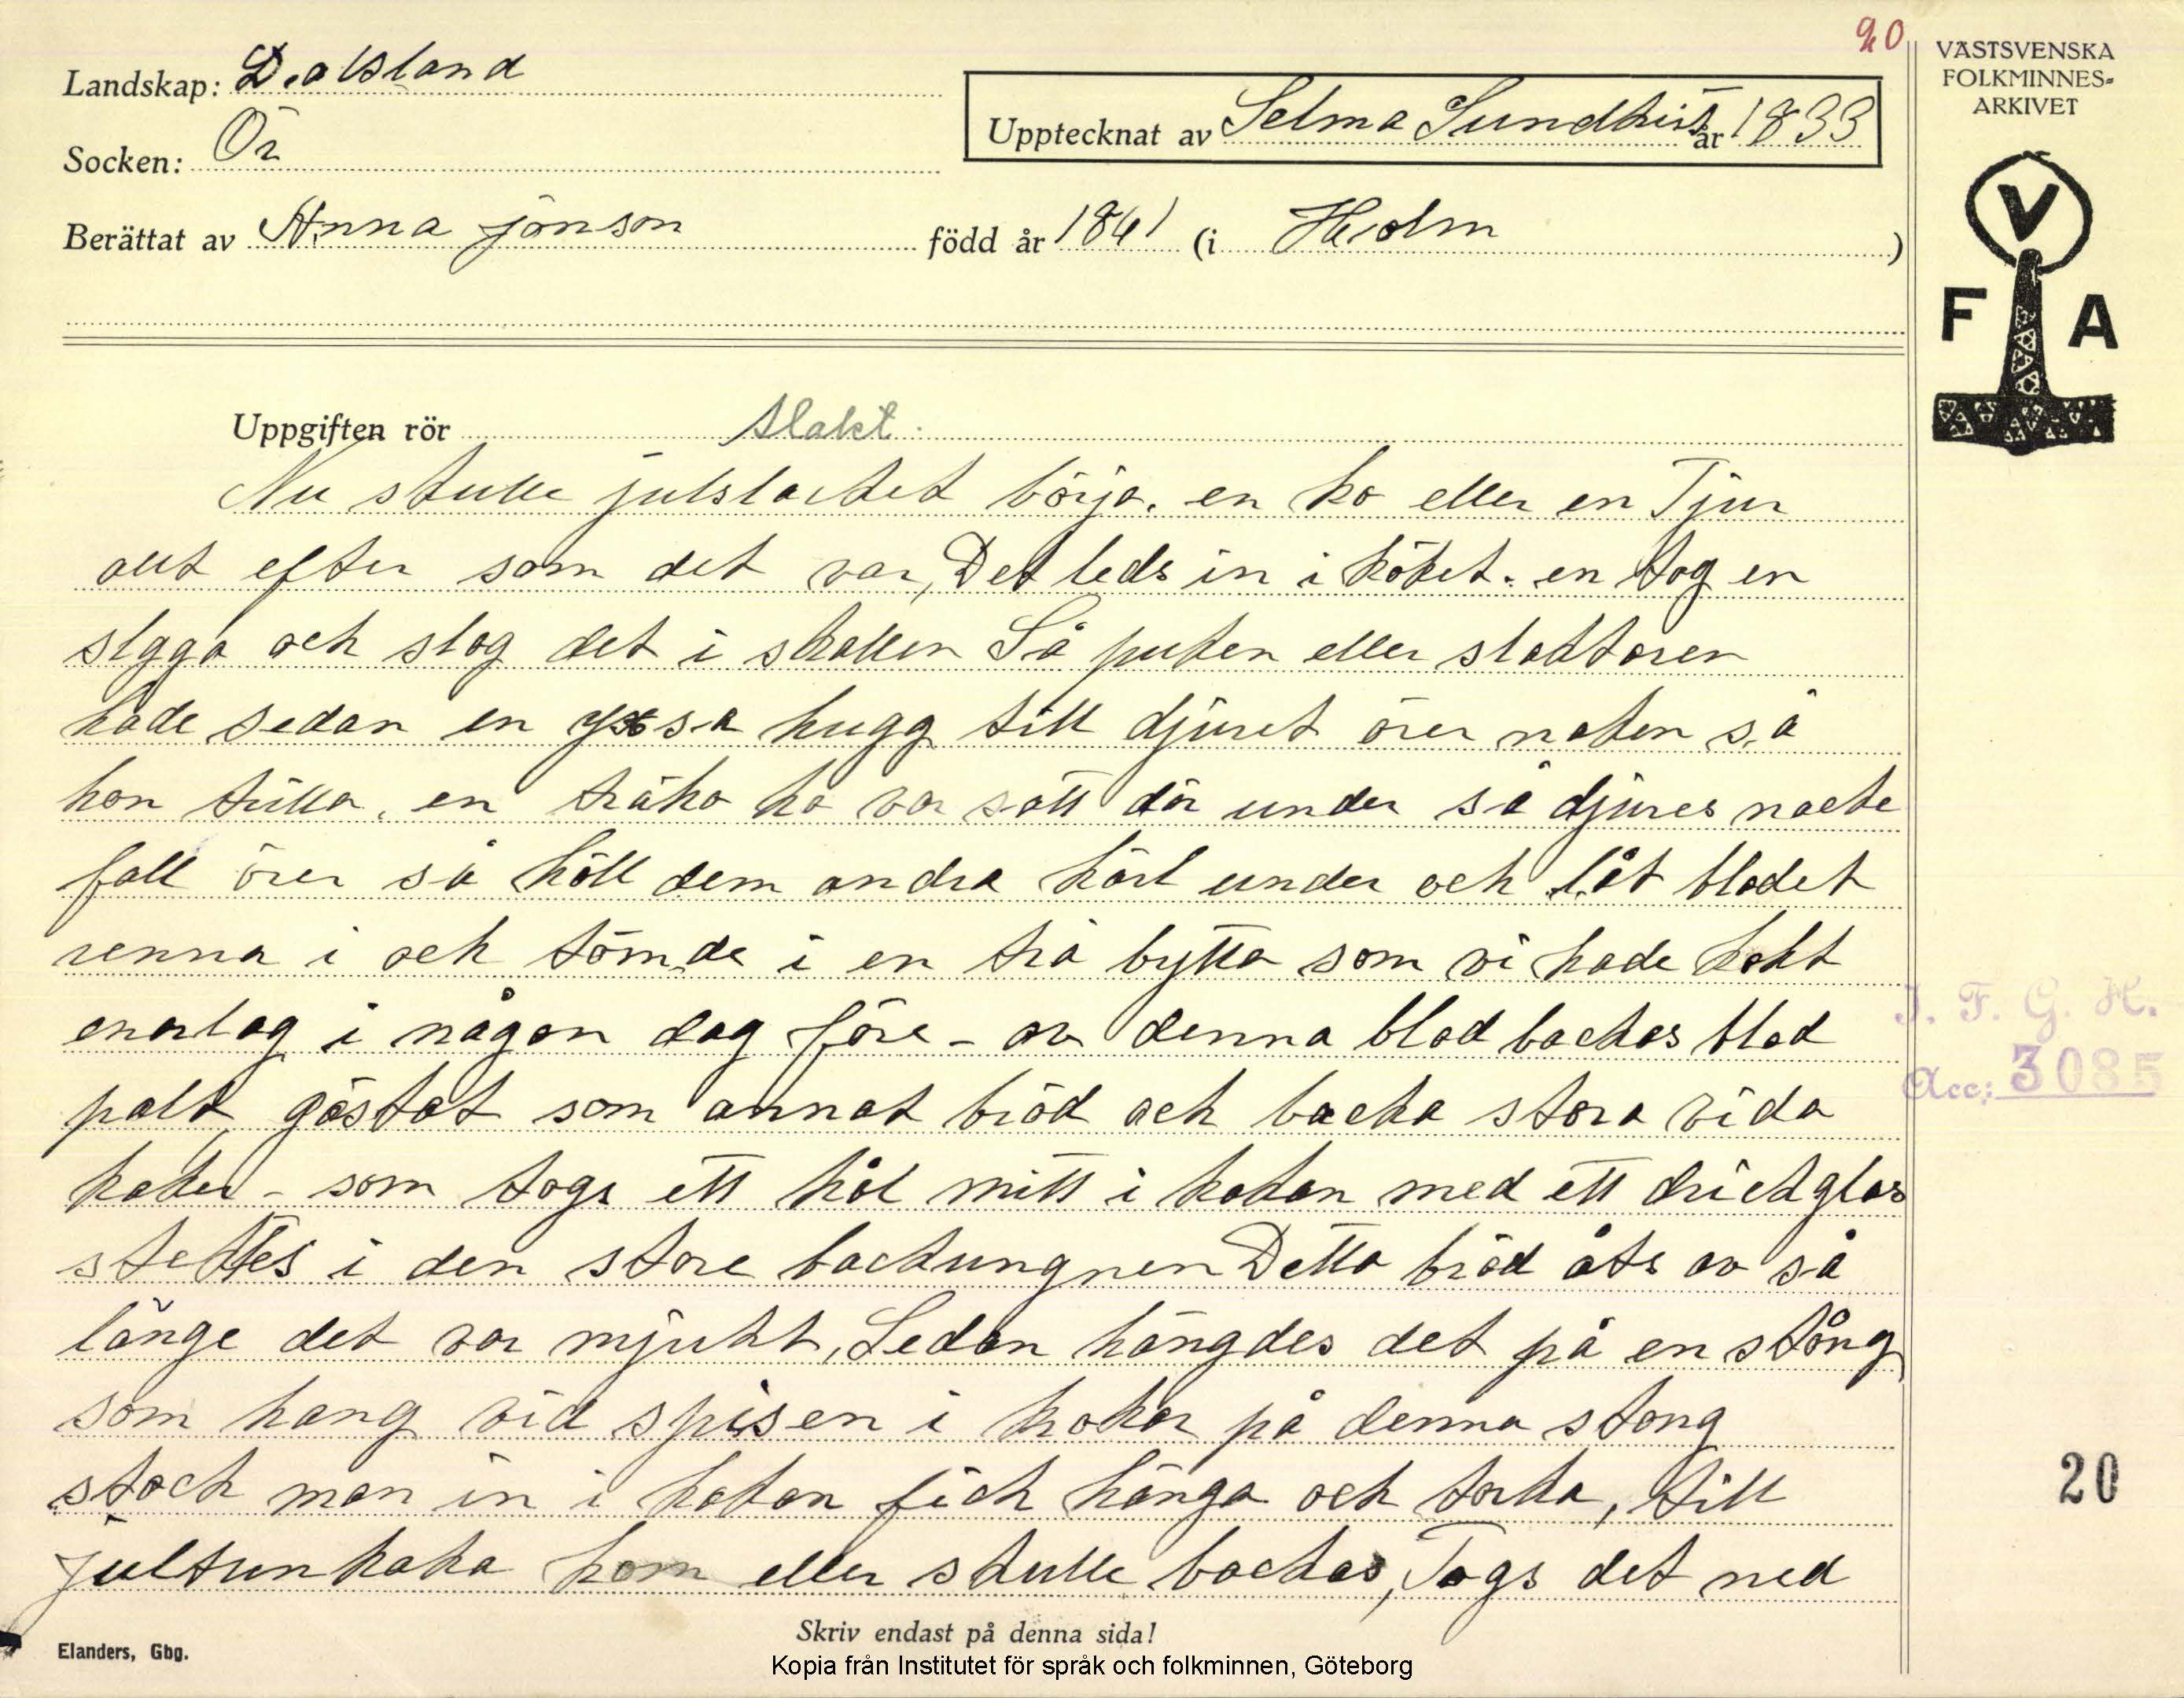 20
Landskap: Dalsland
Upptecknat av Selma Sundkvist år 1933
Socken: Ör
Berättat av Anna Jonson född år 1841 (i Heolm)
VÄSTSVENSKA
FOLKMINNES-
ARKIVET
V
F A
Uppgiften rör slakt.
Nu skulle julslacket börja. en ko eller en Tjur
alt efter som det var, Det leds in i köket. en tog en
slgga och slog det i skallen Så puken eller slaktaren
hade sedan en yxsa hugg till djuret över naken så
hon trilla. en träho ho var satt där under så djures nacke
fall över så höll dem andra kärl under och låt blodet
renna i och tömde i en trä bytta som vi hade kokt
enerlag i någon dag före - av denna blod backas blod
palt gästat som annat bröd och backa stora vida
kaker - som togs ett hål mitt i kakan med ett drickglas
stektes i den store backungnen Detta bröd åts av så
länge det var mjukt, Sedan hängdes det på en stång
som hang vid spisen i krokar på denna stong
stack man in i kakan fick hänga och torka, till
jultunkaka kom eller skulle backas, Togs det ned
J. F. G. H.
Acc: 3085
20
Elanders, Gbg.
Skriv endast på denna sida!
Kopia från Institutet för språk och folkminnen, Göteborg